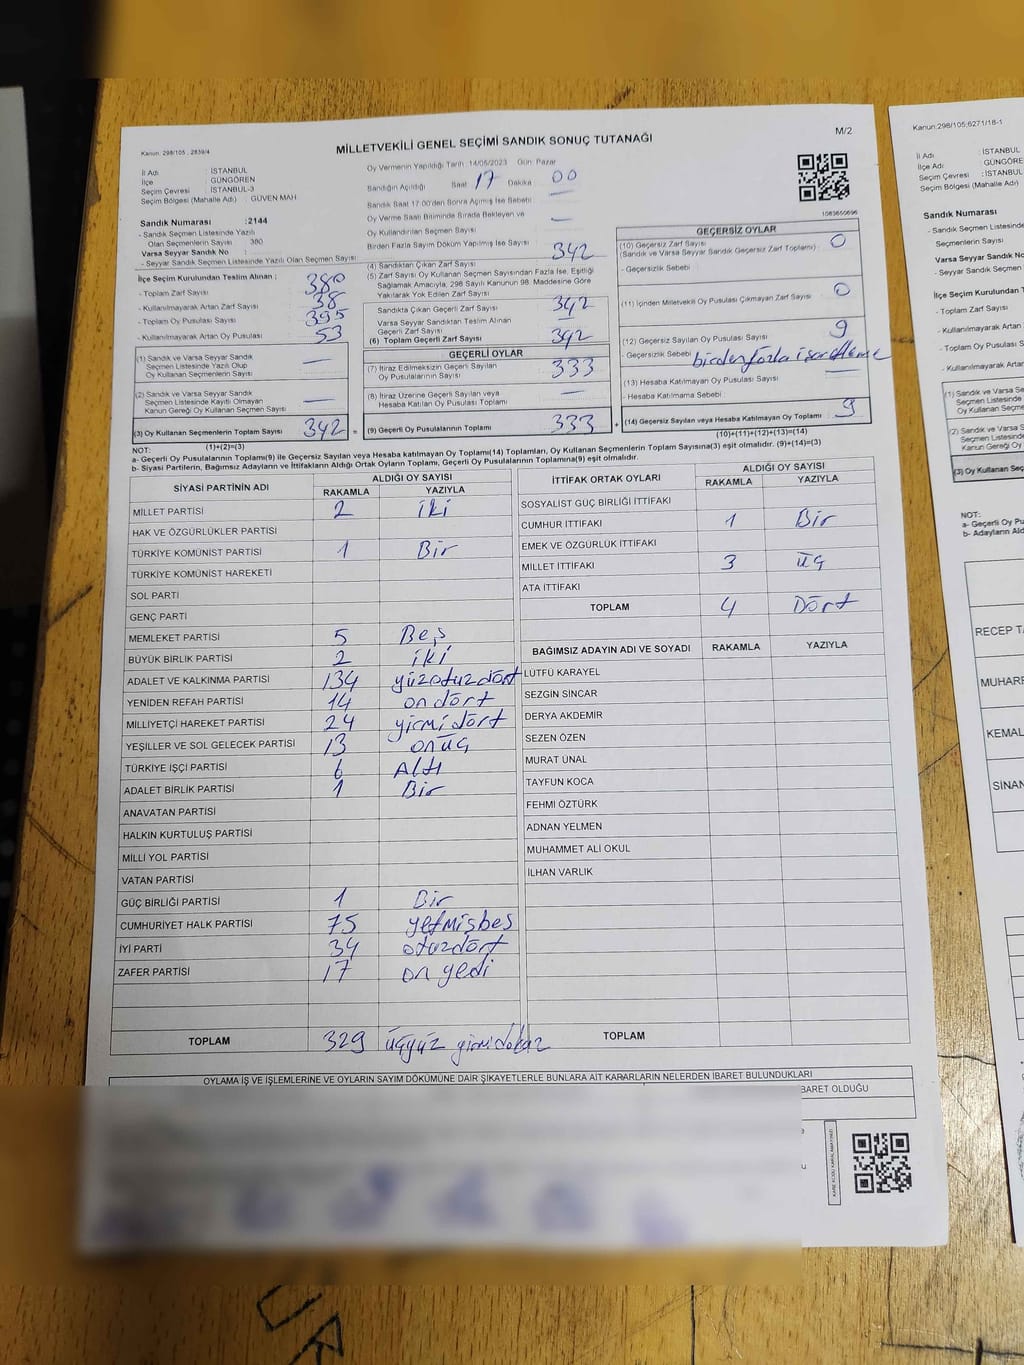 Kanun: 298/105 , 2839/4
MİLLETVEKİLİ GENEL SEÇİMİ SANDIK SONUÇ TUTANAĞI
M/2
İl Adı : İSTANBUL
İlçe : GÜNGÖREN
Seçim Çevresi : İSTANBUL-3
Seçim Bölgesi (Mahalle Adı) : GÜVEN MAH
Sandık Numarası : 2144
- Sandık Seçmen Listesinde Yazılı
Olan Seçmenlerin Sayısı : 380
Varsa Seyyar Sandık No :
- Seyyar Sandık Seçmen Listesinde Yazılı Olan Seçmen Sayısı
Oy Vermenin Yapıldığı Tarih :14/05/2023 Gün: Pazar
Sandığın Açıldığı Saat 17 Dakika 00
Sandık Saat 17.00'den Sonra Açılmış İse Sebebi
Oy Verme Saati Bitiminde Sırada Bekleyen ve
Oy Kullandırılan Seçmen Sayısı
Birden Fazla Sayım Döküm Yapılmış İse Sayısı
1083650696
İlçe Seçim Kurulundan Teslim Alınan ;
- Toplam Zarf Sayısı 380
- Kullanılmayarak Artan Zarf Sayısı 38
- Toplam Oy Pusulası Sayısı 395
- Kullanılmayarak Artan Oy Pusulası 53
(1) Sandık ve Varsa Seyyar Sandık
Seçmen Listesinde Yazılı Olup
Oy Kullanan Seçmenlerin Sayısı
(2) Sandık ve Varsa Seyyar Sandık
Seçmen Listesinde Kayıtlı Olmayan
Kanun Gereği Oy Kullanan Seçmen Sayısı
(3) Oy Kullanan Seçmenlerin Toplam Sayısı 342 =
(1)+(2)=(3)
(4) Sandıktan Çıkan Zarf Sayısı 342
(5) Zarf Sayısı Oy Kullanan Seçmen Sayısından Fazla İse, Eşitliği
Sağlamak Amacıyla, 298 Sayılı Kanunun 98. Maddesine Göre
Yakılarak Yok Edilen Zarf Sayısı
Sandıkta Çıkan Geçerli Zarf Sayısı 342
Varsa Seyyar Sandıktan Teslim Alınan
Geçerli Zarf Sayısı
(6) Toplam Geçerli Zarf Sayısı 342
GEÇERLİ OYLAR
(7) İtiraz Edilmeksizin Geçerli Sayılan
Oy Pusulalarının Sayısı 333
(8) İtiraz Üzerine Geçerli Sayılan veya
Hesaba Katılan Oy Pusulası Toplamı
(9) Geçerli Oy Pusulalarının Toplamı 333 +
GEÇERSİZ OYLAR
(10) Geçersiz Zarf Sayısı 0
(Sandık ve Varsa Seyyar Sandık Geçersiz Zarf Toplamı)
- Geçersizlik Sebebi
(11) İçinden Milletvekili Oy Pusulası Çıkmayan Zarf Sayısı 0
(12) Geçersiz Sayılan Oy Pusulası Sayısı 9
- Geçersizlik Sebebi birden fazla işaretleme
(13) Hesaba Katılmayan Oy Pusulası Sayısı
- Hesaba Katılmama Sebebi
(14) Geçersiz Sayılan veya Hesaba Katılmayan Oy Toplamı 9
(10)+(11)+(12)+(13)=(14)
NOT:
a- Geçerli Oy Pusulalarının Toplamı(9) ile Geçersiz Sayılan veya Hesaba Katılmayan Oy Toplamı(14) Toplamları, Oy Kullanan Seçmenlerin Toplam Sayısına(3) eşit olmalıdır. (9)+(14)=(3)
b- Siyasi Partilerin, Bağımsız Adayların ve İttifakların Aldığı Ortak Oyların Toplamı, Geçerli Oy Pusulalarının Toplamına(9) eşit olmalıdır.
SİYASİ PARTİNİN ADI ALDIĞI OY SAYISI
RAKAMLA YAZIYLA
MİLLET PARTİSİ 2 iki
HAK VE ÖZGÜRLÜKLER PARTİSİ
TÜRKİYE KOMÜNİST PARTİSİ 1 Bir
TÜRKİYE KOMÜNİST HAREKETİ
SOL PARTİ
GENÇ PARTİ
MEMLEKET PARTİSİ 5 Beş
BÜYÜK BİRLİK PARTİSİ 2 iki
ADALET VE KALKINMA PARTİSİ 134 yüzotuzdört
YENİDEN REFAH PARTİSİ 14 ondört
MİLLİYETÇİ HAREKET PARTİSİ 24 yirmidört
YEŞİLLER VE SOL GELECEK PARTİSİ 13 onüç
TÜRKİYE İŞÇİ PARTİSİ 6 Altı
ADALET BİRLİK PARTİSİ 1 Bir
ANAVATAN PARTİSİ
HALKIN KURTULUŞ PARTİSİ
MİLLİ YOL PARTİSİ
VATAN PARTİSİ
GÜÇ BİRLİĞİ PARTİSİ 1 Bir
CUMHURİYET HALK PARTİSİ 75 yetmişbeş
İYİ PARTİ 34 otuzdört
ZAFER PARTİSİ 17 on yedi
TOPLAM 329 üçyüz yirmidokuz
İTTİFAK ORTAK OYLARI ALDIĞI OY SAYISI
RAKAMLA YAZIYLA
SOSYALİST GÜÇ BİRLİĞİ İTTİFAKI
CUMHUR İTTİFAKI 1 Bir
EMEK VE ÖZGÜRLÜK İTTİFAKI
MİLLET İTTİFAKI 3 üç
ATA İTTİFAKI
TOPLAM 4 Dört
BAĞIMSIZ ADAYIN ADI VE SOYADI RAKAMLA YAZIYLA
LÜTFÜ KARAYEL
SEZGİN SİNCAR
DERYA AKDEMİR
SEZEN ÖZEN
MURAT ÜNAL
TAYFUN KOCA
FEHMİ ÖZTÜRK
ADNAN YELMEN
MUHAMMET ALİ OKUL
İLHAN VARLIK
TOPLAM
OYLAMA İŞ VE İŞLEMLERİNE VE OYLARIN SAYIM DÖKÜMÜNE DAİR ŞİKAYETLERLE BUNLARA AİT KARARLARIN NELERDEN İBARET BULUNDUKLARI
BARET OLDUĞU
Kanun:298/105;6271/18-1
İl Adı : İSTANBUL
İlçe Adı : GÜNGÖRE
Seçim Çevresi : İSTANBUL
Seçim Bölgesi (Mahalle Adı)
Sandık Numarası
- Sandık Seçmen Listesinde
Seçmenlerin Sayısı
Varsa Seyyar Sandık No
- Seyyar Sandık Seçmen
İlçe Seçim Kurulundan Te
- Toplam Zarf Sayısı
- Kullanılmayarak Artan Z
- Toplam Oy Pusulası S
- Kullanılmayarak
(1) Sandık ve Varsa Se
Seçmen Listesinde
Oy Kullanan Seçm
(2) Sandık ve Varsa
Seçmen Listesi
Kanun Gereği O
(3) Oy Kullanan Seç
NOT:
a- Geçerli Oy Pu
b- Adayların Ald
RECEP TA
MUHARR
KEMAL
SİNAN